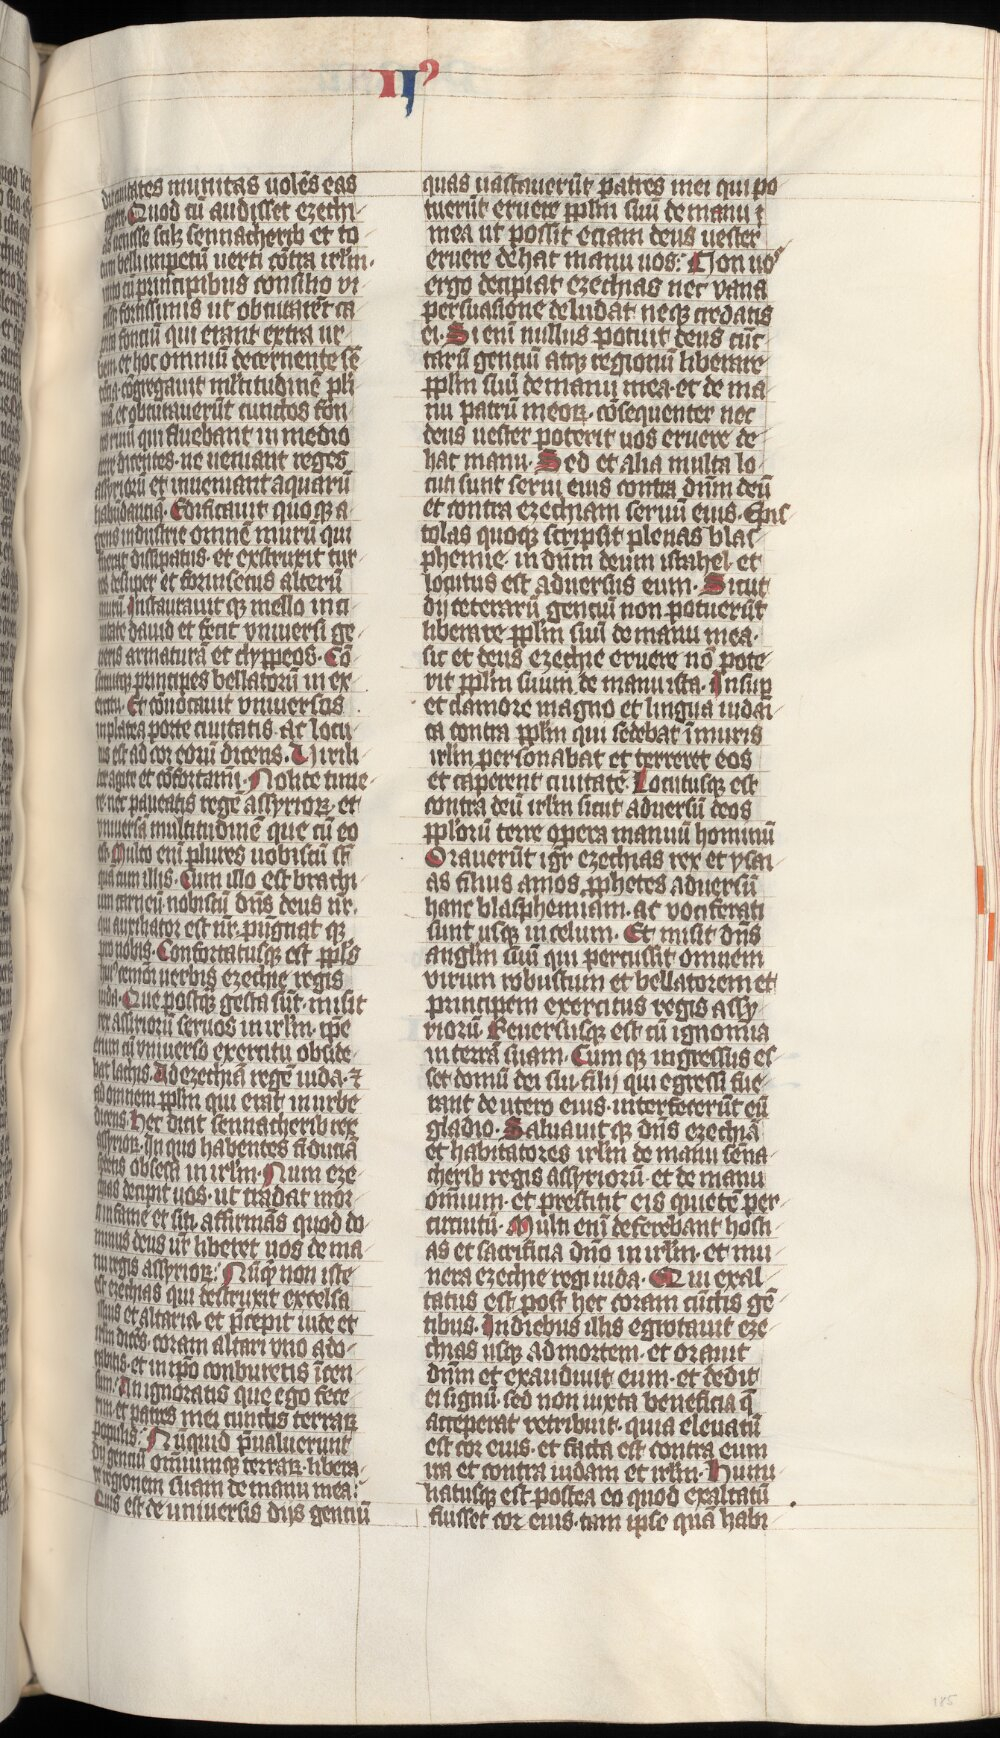 IIꝰ
ditauitates munitas uolēs eas
Quod cū audisset ezechi
uenisse scilz sennacherib et to
tum belli impetū uerti cōtra irlm̄
cū principibus consilio vi
fortissimis ut obturarēt ca
fonciū qui erant extra ur
bem et hoc omniū decernente sē
cōgregauit multitudinē pli
et obturauerūt cunctos fon
riuū qui fluebant in medio
dicentes ne ueniant reges
assyriorū et inueniant aquarū
habūdancia. Edificauit quoqꝫ a
gens industrie omnē murū qui
fuerat dissipatus et exstruxit tur
res desuper et forinsecus alterū
murū Instaurauit qꝫ mello in ci
uitate dauid et fecit vniuersi ge
neris armaturā et clyppeos. Cō
stituitqꝫ principes bellatorū in ex
ercitu. Et cōuocauit vniuersos
in platea porte ciuitatis. Ac locu
tus est ad cor eorū dicens. Virili
ter agite et cōfortamī. Nolite time
re nec paueatis regē assyrioꝝ et
vniuersā multitudinē que cū eo
est Multo enī plures nobiscū st̄
quā cum illis. Cum illo est brachi
um carneū nobiscū dn̄s deus nr̄.
qui auxiliator est nr̄ pūgnat qꝫ
pro nobis. Confortatusqꝫ est ppl̄s
huiꝰcemōi verbis ezechie regis
iuda. Que postqꝫ gesta sūt misit
rex assiriorū seruos in irlm̄. ip̄e
enim cū vniuerso exercitu obside
bat lachis. Ad ezechiā regē iuda ⁊
ad omnem pplm̄ qui erat in urbe
dicens. Hec dicit sennacherib rex
assyrioꝝ. In quo habentes fiduciā
sedetis obsessi in irlm̄. Num eze
chias decipit uos ut tradat mor
ti in fame et siti affirmās quod do
minus deus ur̄ liberet uos de ma
nu regis assyrioꝝ. Nūqꝫ non iste
est ezechias qui destruxit excelsa
illius et altaria et p̄cepit iude et
irlm̄ dicēs. coram altari vno ado
rabitis et in ip̄o conburetis īcen
sum. An ignoratis que ego fece
rim et patres mei cunctis terraꝝ
populis. Nūquid p̄ualuerunt
dij genciū omniumqꝫ terraꝝ libera
re regionem suam de manu mea.
Quis est de uniuersis dijs genciū
quas uastauerūt patres mei qui po
tuerūt eruere pplm̄ suū de manu
mea ut possit eciam deus uester
eruere de hac manu uos. Non uoˢ
ergo decipiat ezechias nec vana
persuasione deludat neqꝫ credatis
ei. Si enī nullus potuit deus cūc
tarū genciū atqꝫ regionū liberare
pplm̄ suū de manu mea et de ma
nu patrū meoꝝ. cōsequenter nec
deus uester poterit uos eruere de
hac manu. Sed et alia multa lo
cuti sunt serui eius contra dn̄m deū
et contra ezechiam seruū eius. Epis
tolas quoqꝫ scripsit plenas blas
phemie in dn̄m deum israhel et
locutus est aduersus eum. Sicut
dij ceterarū genciū non potuerūt
liberare pplm̄ suū de manu mea.
sic et deus ezechie eruere nō pote
rit pplm̄ suum de manu ista. Insuꝑ
et clamore magno et lingua iudai
ca contra pplm̄ qui sedebat ī muris
irlm̄ personabat et terreret eos
et caperent ciuitatē. Locutusqꝫ est
contra deū irlm̄ sicut aduersū deos
pplorū terre opera manuū hominū
Orauerūt igr̄ ezechias rex et ysai
as filius amos pphetes aduersū
hanc blasphemiam. ac vociferati
sunt usqꝫ in celum. Et misit dn̄s
anglm̄ suū qui percussit omnem
virum robustum et bellatorem et
principem exercitus regis assy
riorū Reuersusqꝫ est cū ignomīa
in terrā suam. Cum qꝫ ingressus es
set domū dei sui filij qui egressi fue
rant de utero eius interfecerūt eū
gladio. Saluauit qꝫ dn̄s ezechiā
et habitatores irlm̄ de manu sēna
cherib regis assyriorū et de manu
omnium et prestitit eis quietē per
circuitū. Multi enī deferebant hosti
as et sacrificia dn̄o in irlm̄. et mu
nera ezechie regi iuda. Qui exal
tatus est post hec coram cūctis gē
tibus. In diebus illis egrotauit eze
chias usqꝫ ad mortem. et orauit
dn̄m et exaudiuit eum. et dedit
ei signū. sed non iuxta beneficia q̄
acceperat retribuit. quia eleuatū
est cor eius. et facta est contra eum
ira et contra iudam et irlm̄. Humi
liatusqꝫ est postea eo quod exaltatū
fuisset cor eius. tam ipse quā habi
185